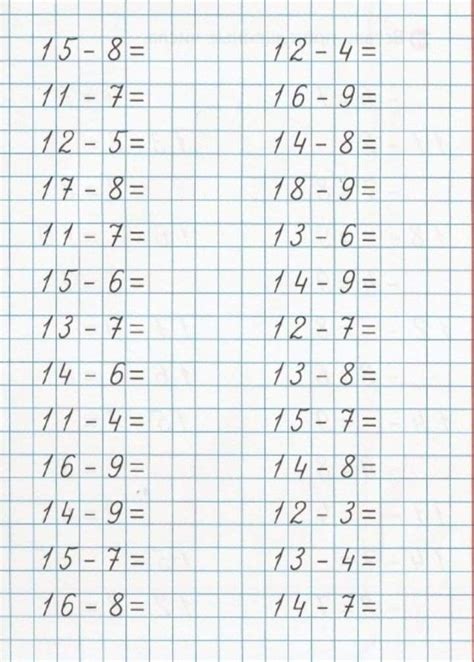 15-8= 12-4=
11-7= 16-9=
12-5= 14-8=
17-8= 18-9=
11-7= 13-6=
15-6= 14-9=
13-7= 12-7=
14-6= 13-8=
11-4= 15-7=
16-9= 14-8=
14-9= 12-3=
15-7= 13-4=
16-8= 14-7=